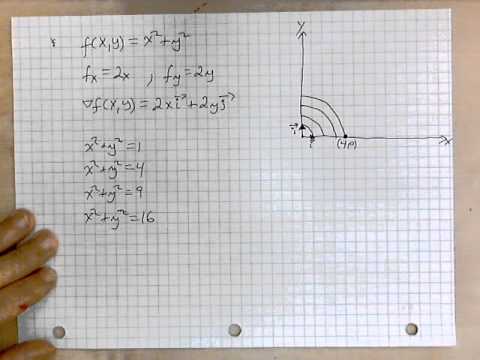 f(x,y) = x²+y²
fx = 2x , fy = 2y
∇f(x,y) = 2xi⃗ + 2yj⃗
x²+y² = 1
x²+y² = 4
x²+y² = 9
x²+y² = 16
y
x
i⃗
(4,0)